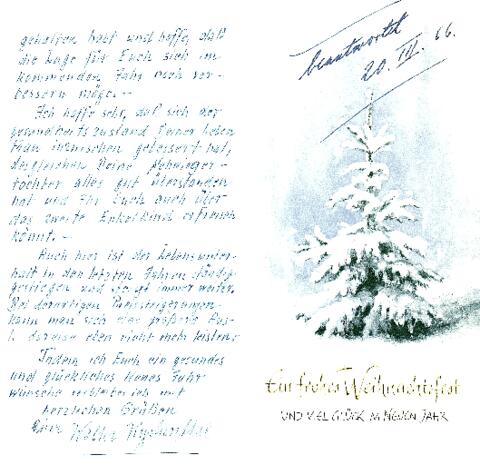 geholfen habt und hoffe, daß
die Lage für Euch sich im
kommenden Jahr noch ver-
bessern möge. —
Ich hoffe sehr, daß sich der
Gesundheitszustand Deiner lieben
Frau inzwischen gebessert hat,
desgleichen Deine Schwieger-
tochter alles gut überstanden
hat und Ihr Euch auch über
das zweite Enkelkind erfreuen
könnt. —
Auch hier ist der Lebensunter-
halt in den letzten Jahren ständig
gestiegen und steigt immer weiter.
Bei derartigen Preissteigerungen
kann man sich eine größere Aus-
landsreise eben nicht mehr leisten.
Indem ich Euch ein gesundes
und glückliches Neues Jahr
wünsche verbleibe ich mit
herzlichen Grüßen
Euer
beantwortet
20. III. 66.
Ein frohes Weihnachtsfest
UND VIEL GLÜCK IM NEUEN JAHR